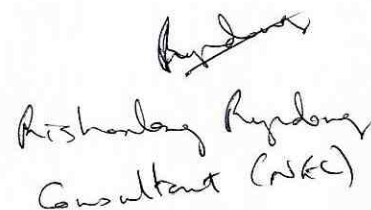 Rishanlang Ryndong
Consultant (NEC)